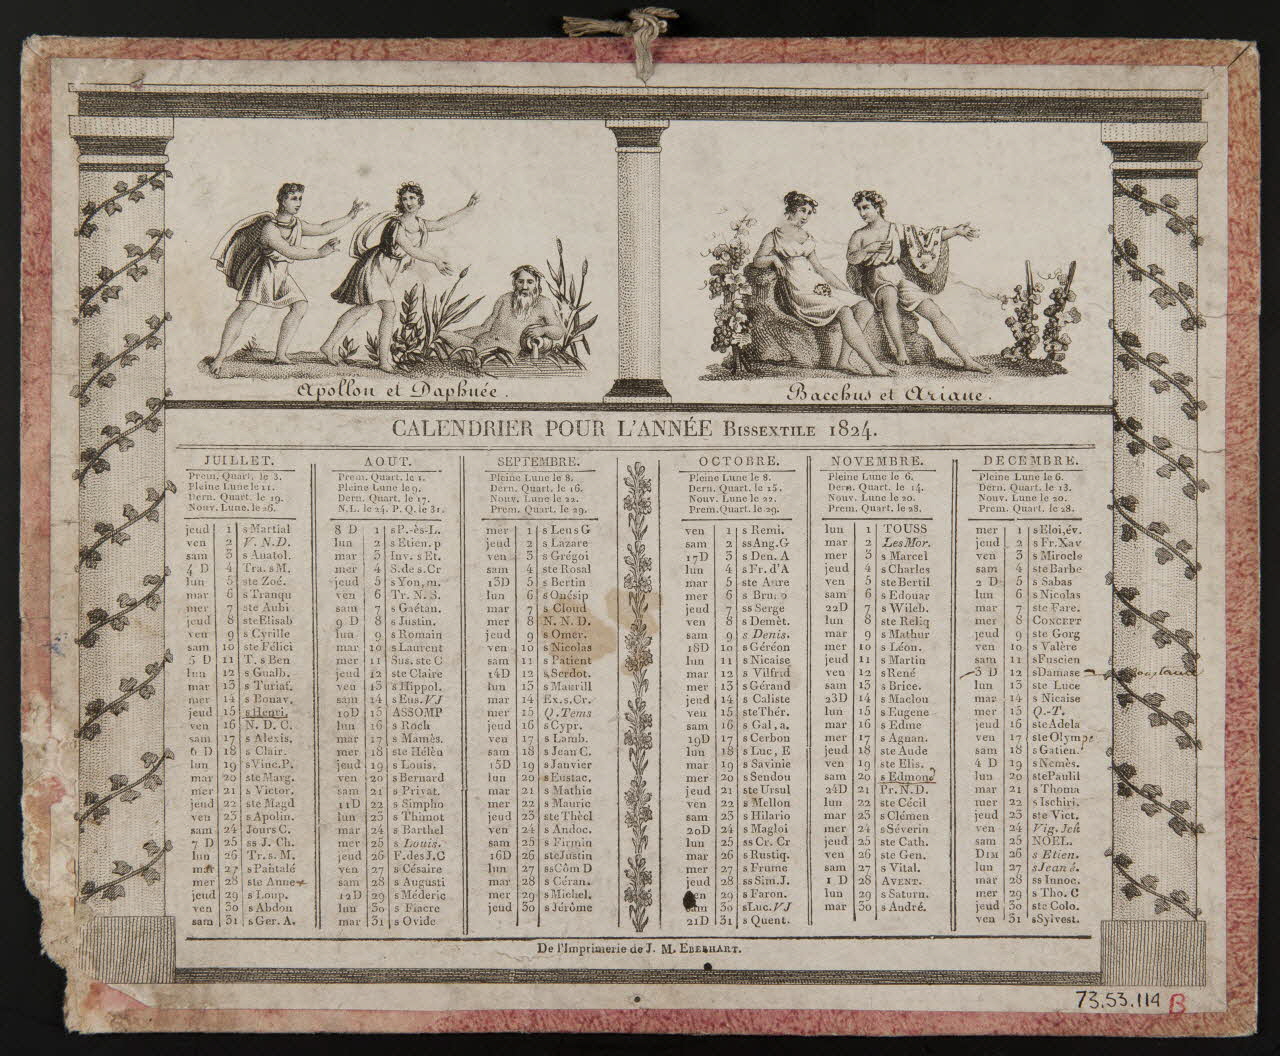 Apollon et Daphnée.
Bacchus et Ariane.
CALENDRIER POUR L'ANNÉE BISSEXTILE 1824.
JUILLET.
Prem. Quart. le 3.
Pleine Lune le 11.
Dern. Quart. le 19.
Nouv. Lune. le 26.
jeud 1 s Martial
ven 2 V. N.D.
sam 3 s Anatol.
4 D 4 Tra. s M.
lun 5 ste Zoé.
mar 6 s Tranqu
mer 7 ste Aubi
jeud 8 ste Elisab
ven 9 s Cyrille
sam 10 ste Félici
5 D 11 T. s Ben
lun 12 s Gualb.
mar 13 s Turiaf.
mer 14 s Bonav.
jeud 15 s Henri.
ven 16 N. D. C.
sam 17 s Alexis.
6 D 18 s Clair.
lun 19 s Vinc. P.
mar 20 ste Marg.
mer 21 s Victor.
jeud 22 ste Magd
ven 23 s Apolin.
sam 24 Jours C.
7 D 25 ss J. Ch.
lun 26 Tr. s. M.
mar 27 s Pantalé
mer 28 ste Anne
jeud 29 s Loup.
ven 30 s Abdon
sam 31 s Ger. A.
AOUT.
Prem. Quart. le 1.
Pleine Lune le 9.
Dern. Quart. le 17.
N.L. le 24. P. Q. le 31.
8 D 1 s P.-ès-L.
lun 2 s Etien. p
mar 3 Inv. s Et.
mer 4 S. de s. Cr
jeud 5 s Yon, m.
ven 6 Tr. N. S.
sam 7 s Gaétan.
9 D 8 s Justin.
lun 9 s Romain
mar 10 s Laurent
mer 11 Sus. ste C
jeud 12 ste Claire
ven 13 s Hippol.
sam 14 s Eus. VJ
10D 15 ASSOMP
lun 16 s Roch
mar 17 s Mamès.
mer 18 ste Hélèn
jeud 19 s Louis.
ven 20 s Bernard
sam 21 s Privat.
11D 22 s Simpho
lun 23 s Thimot
mar 24 s Barthel
mer 25 s Louis.
jeud 26 F. des J.C
ven 27 s Césaire
sam 28 s Augusti
12D 29 s Méderic
lun 30 s Fiacre
mar 31 s Ovide
SEPTEMBRE.
Pleine Lune le 8.
Dern. Quart. le 16.
Nouv. Lune le 22.
Prem. Quart. le 29.
mer 1 s Leu s G
jeud 2 s Lazare
ven 3 s Grégoi
sam 4 ste Rosal
13D 5 s Bertin
lun 6 s Onésip
mar 7 s Cloud
mer 8 N. N. D.
jeud 9 s Omer.
ven 10 s Nicolas
sam 11 s Patient
14D 12 s Serdot.
lun 13 s Maurill
mar 14 Ex. s. Cr.
mer 15 Q. Tems
jeud 16 s Cypr.
ven 17 s Lamb.
sam 18 s Jean C.
15D 19 s Janvier
lun 20 s Eustac.
mar 21 s Mathie
mer 22 s Mauric
jeud 23 ste Thècl
ven 24 s Andoc.
sam 25 s Firmin
16D 26 ste Justin
lun 27 ss Côm D
mar 28 s Céran.
mer 29 s Michel.
jeud 30 s Jérôme
OCTOBRE.
Pleine Lune le 8.
Dern. Quart. le 15.
Nouv. Lune le 22.
Prem. Quart. le 29.
ven 1 s Remi.
sam 2 ss Ang. G
17D 3 s Den. A
lun 4 s Fr. d'A
mar 5 ste Aure
mer 6 s Bruno
jeud 7 ss Serge
ven 8 s Demèt.
sam 9 s Denis.
18D 10 s Géréon
lun 11 s Nicaise
mar 12 s Vilfrid
mer 13 s Gérand
jeud 14 s Caliste
ven 15 ste Thér.
sam 16 s Gal, a.
19D 17 s Cerbon
lun 18 s Luc, E
mar 19 s Savinie
mer 20 s Sendou
jeud 21 ste Ursul
ven 22 s Mellon
sam 23 s Hilario
20D 24 s Magloi
lun 25 ss Cr. Cr
mar 26 s Rustiq.
mer 27 s Frume
jeud 28 ss Sim. J.
ven 29 s Faron.
sam 30 s Luc. VJ
21D 31 s Quent.
NOVEMBRE.
Pleine Lune le 6.
Dern. Quart. le 14.
Nouv. Lune le 20.
Prem. Quart. le 28.
lun 1 TOUSS
mar 2 Les Mor.
mer 3 s Marcel
jeud 4 s Charles
ven 5 ste Bertil
sam 6 s Edouar
22D 7 s Wileb.
lun 8 ste Reliq
mar 9 s Mathur
mer 10 s Léon.
jeud 11 s Martin
ven 12 s René
sam 13 s Brice.
23D 14 s Maclou
lun 15 s Eugene
mar 16 s Edme
mer 17 s Agnan.
jeud 18 ste Aude
ven 19 ste Elis.
sam 20 s Edmond
24D 21 Pr. N.D.
lun 22 ste Cécil
mar 23 s Clémen
mer 24 s Séverin
jeud 25 ste Cath.
ven 26 ste Gen.
sam 27 s Vital.
1 D 28 AVENT.
lun 29 s Saturn.
mar 30 s André.
DECEMBRE.
Pleine Lune le 6.
Dern. Quart. le 13.
Nouv. Lune le 20.
Prem. Quart. le 28.
mer 1 s Eloi, év.
jeud 2 s Fr. Xav
ven 3 s Mirocle
sam 4 ste Barbe
2 D 5 s Sabas
lun 6 s Nicolas
mar 7 ste Fare.
mer 8 CONCEPT
jeud 9 ste Gorg
ven 10 s Valère
sam 11 s Fuscien
3 D 12 s Damase
lun 13 ste Luce
mar 14 s Nicaise
mer 15 Q.-T.
jeud 16 ste Adela
ven 17 ste Olymp
sam 18 s Gatien.
4 D 19 s Nemès.
lun 20 ste Paulil
mar 21 s Thoma
mer 22 s Ischiri.
jeud 23 ste Vict.
ven 24 Vig. Jeh
sam 25 NOËL.
DIM 26 s Etien.
lun 27 s Jean é.
mar 28 ss Innoc.
mer 29 s Tho. C
jeud 30 ste Colo.
ven 31 s Sylvest.
De l'Imprimerie de J. M. EBERHART.
73.53.114 B